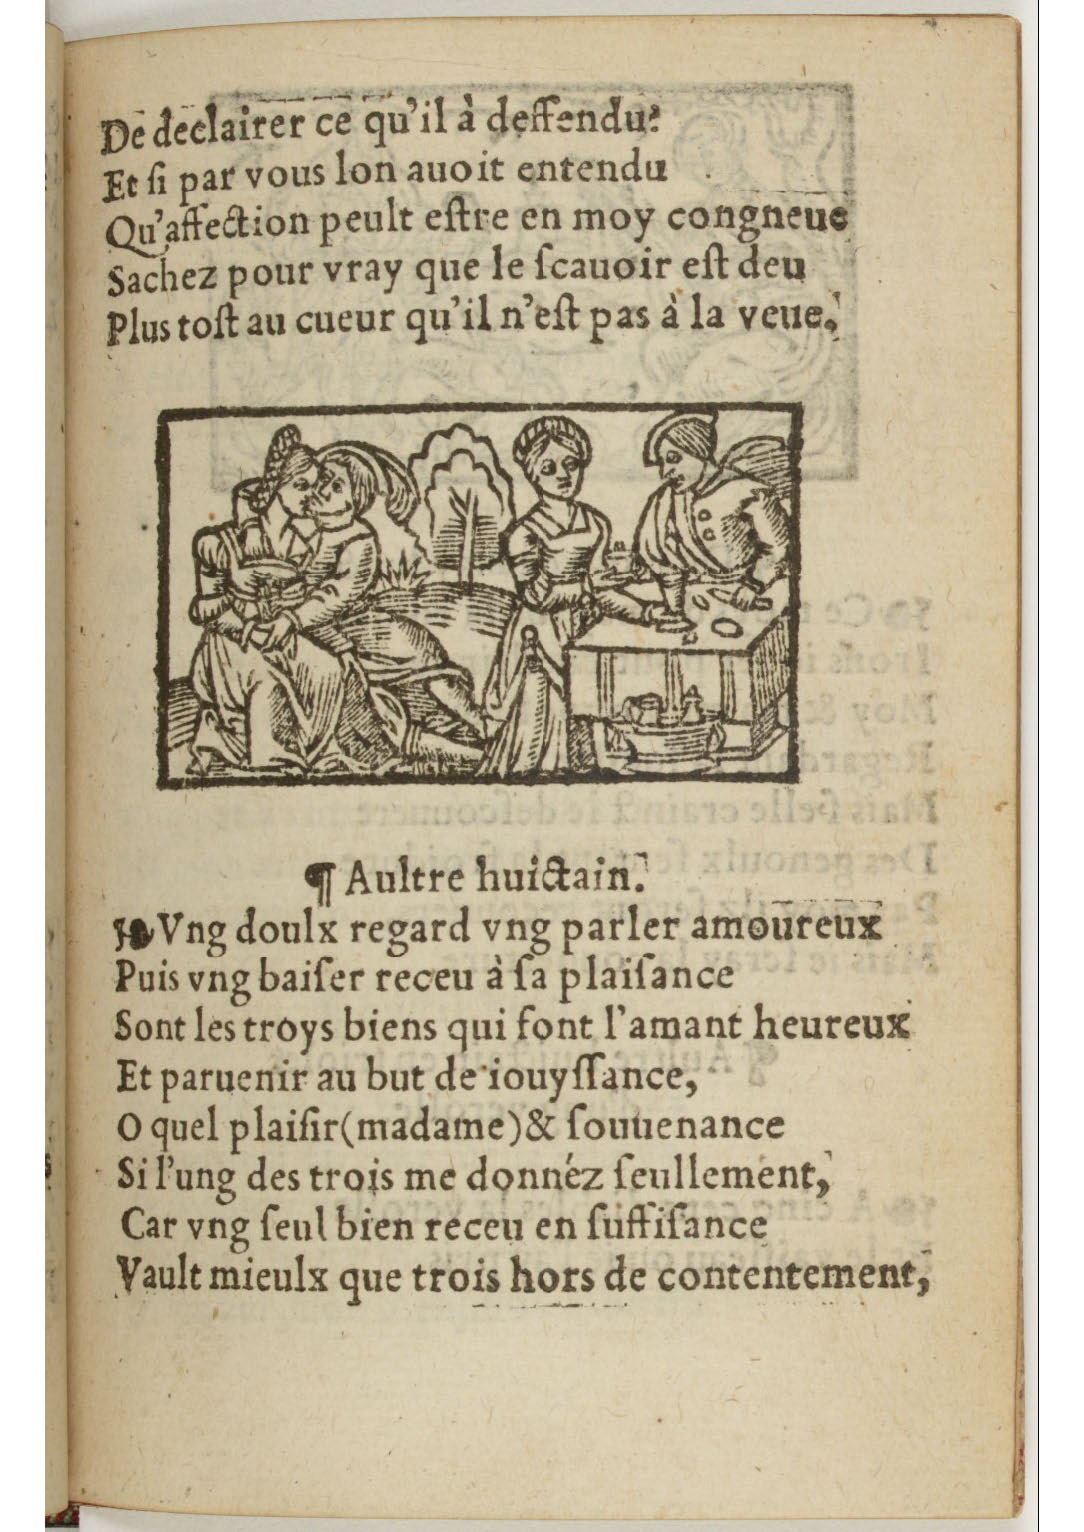 De declairer ce qu'il à deffendu?
Et si par vous lon auoit entendu
Qu'affection peult estre en moy congneue
Sachez pour vray que le scauoir est deu
Plus tost au cueur qu'il n'est pas à la veue.
¶ Aultre huictain.
Vng doulx regard vng parler amoureux
Puis vng baiser receu à sa plaisance
Sont les troys biens qui font l'amant heureux
Et paruenir au but de iouyssance,
O quel plaisir(madame)& souuenance
Si l'ung des trois me donnéz seullement,
Car vng seul bien receu en suffisance
Vault mieulx que trois hors de contentement,